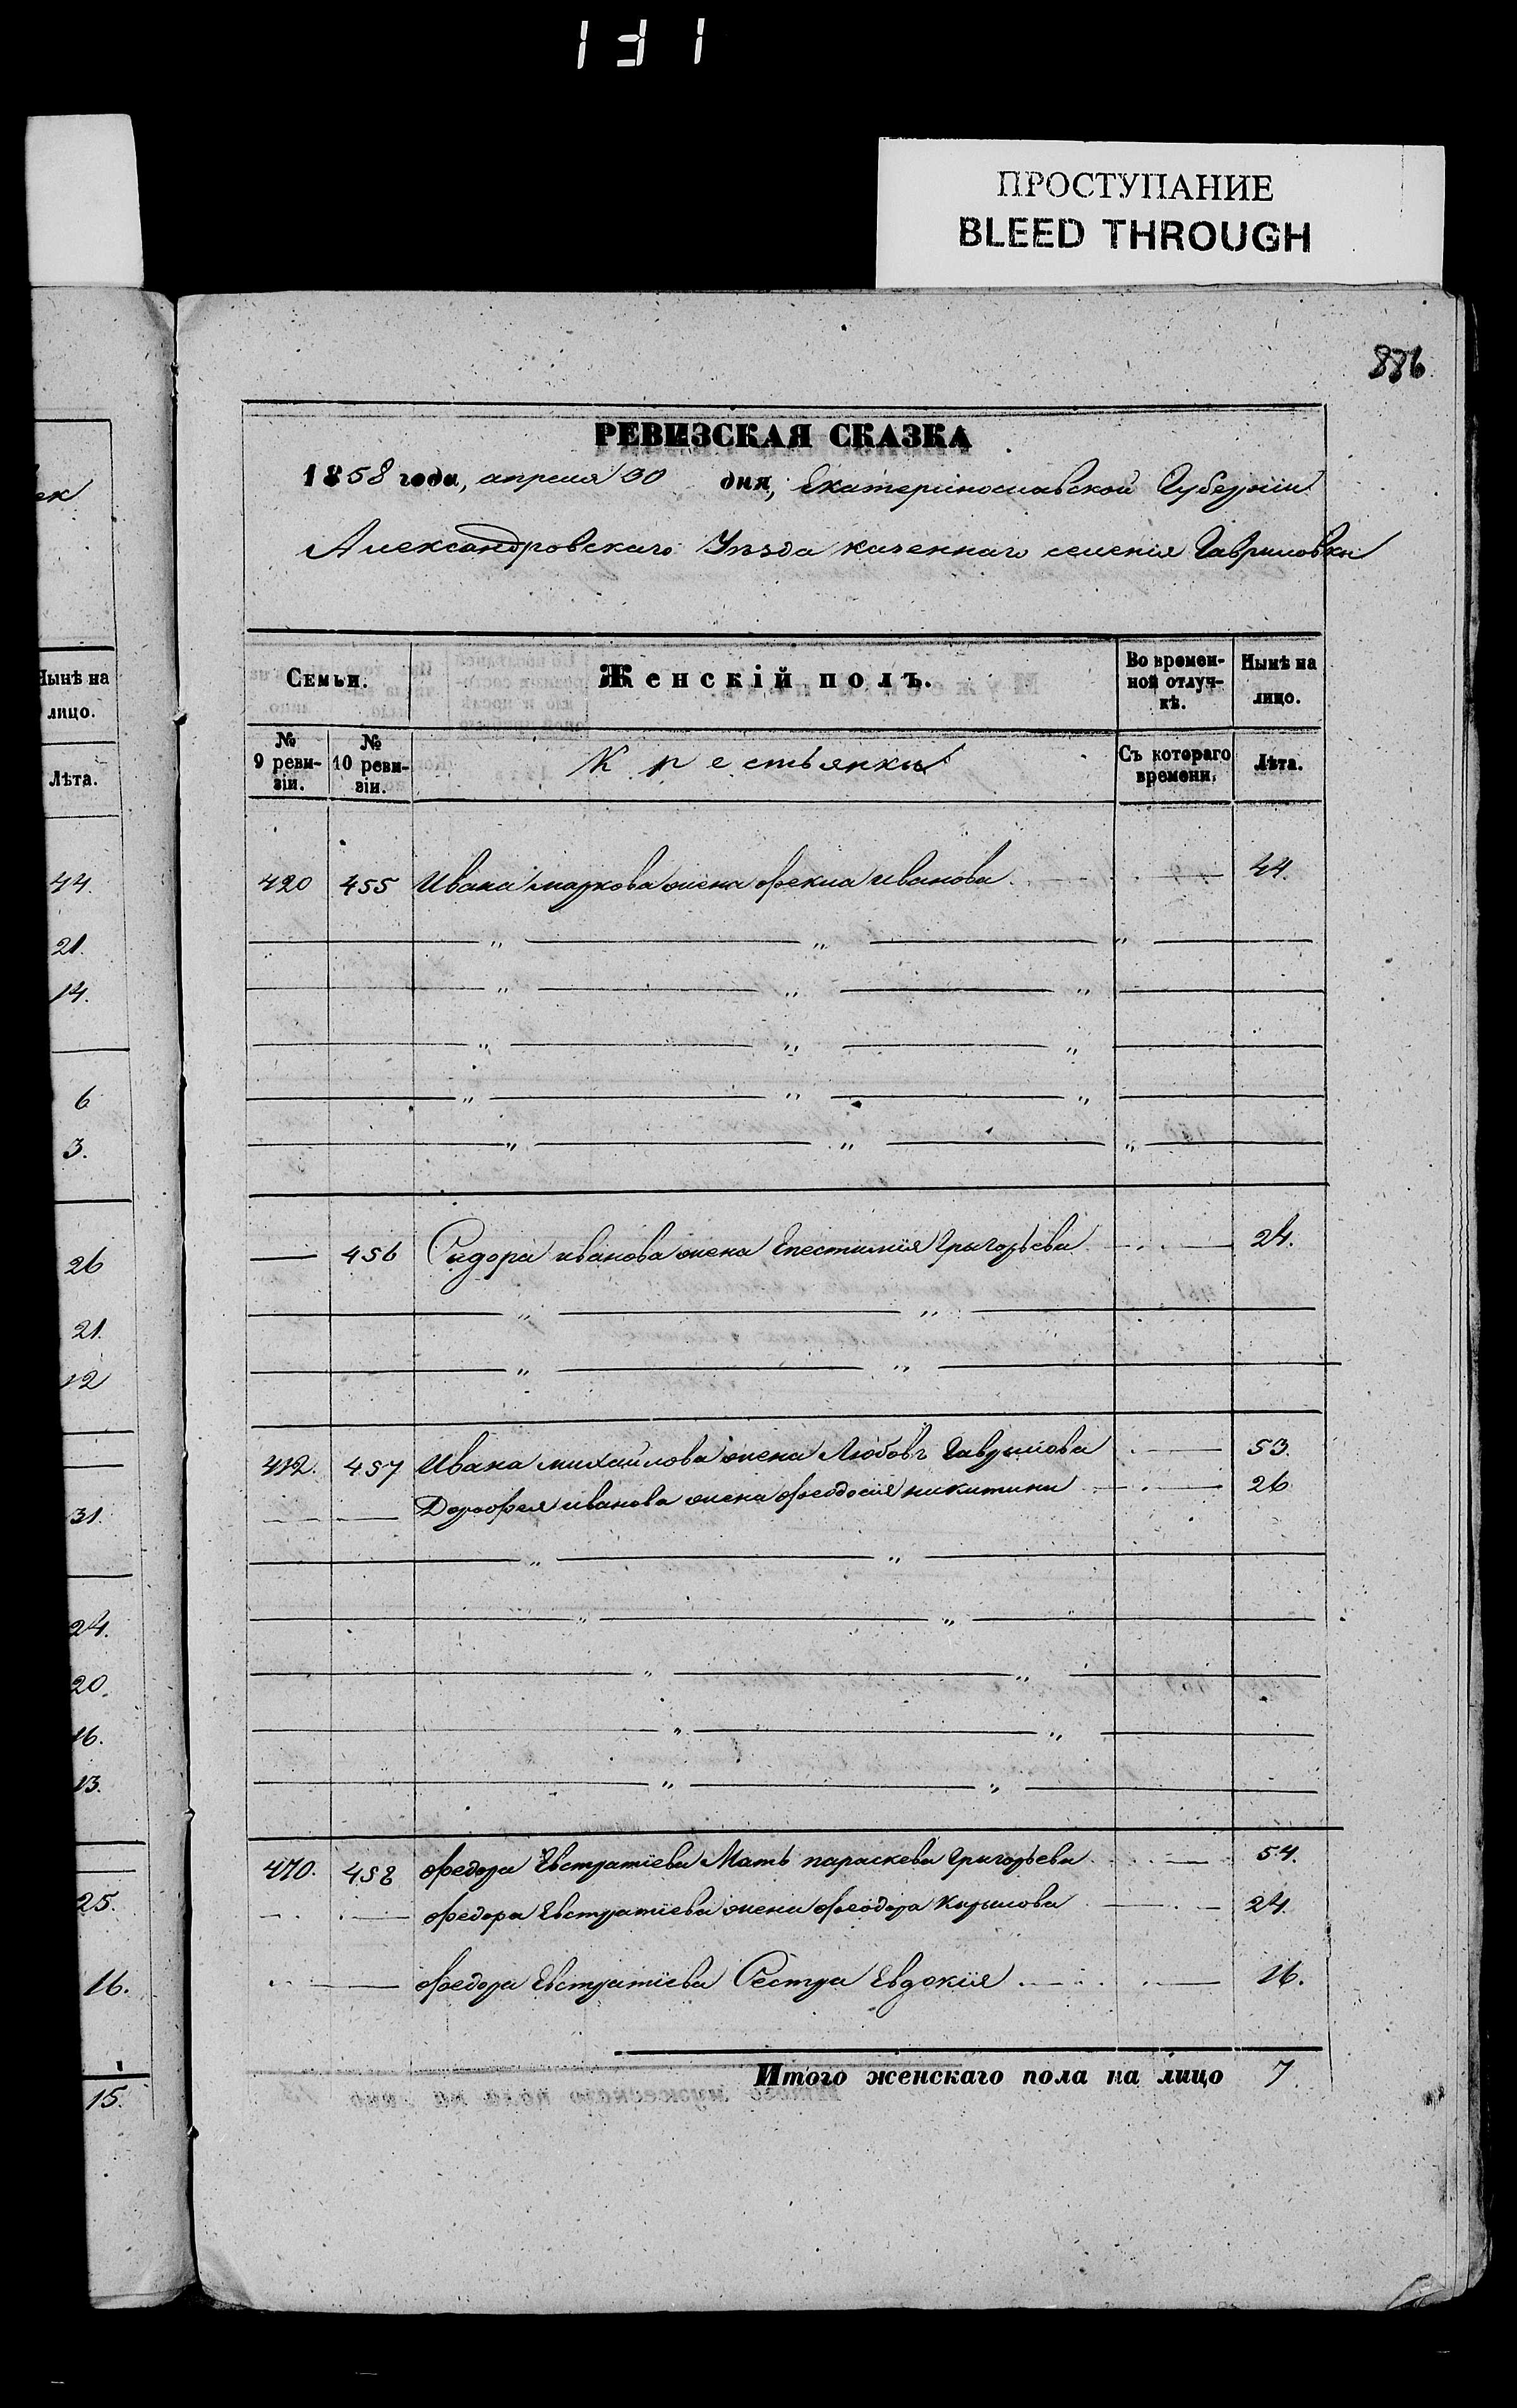 131
ПРОСТУПАНИЕ
BLEED THROUGH
886
РЕВИЗСКАЯ СКАЗКА
1858 года, апреля 30 дня, Екатеринославской Губерніи
Александровскаго Уѣзда казеннаго селенія Гавриловки
Семьи.
Женскій полъ.
Во времен-
ной отлуч-
кѣ.
Нынѣ на
лицо.
№
9 реви-
зіи.
№
10 реви-
зіи.
Крестьянки
Съ котораго
времени.
Лѣта.
420 455 Ивана маркова жена Фекла иванова 44.
456 Сидора иванова жена Епестимия Григорьева 24.
412. 457 Ивана михайлова жена Любовь Гаврилова 53.
Дорофея иванова жена Феодосия никитина 26
470. 458 Федора Евстратиева Мать параскева Григорьева 54.
Федора Евстратиева жена Феодора Кирилова 24.
Федора Евстратиева Сестра Евдокия 16.
Итого женскаго пола на лицо 7.
Нынѣ на
лицо.
Лѣта.
44.
21.
14.
6
3.
26
21.
12
31.
24.
20.
16.
13.
25.
16.
15.